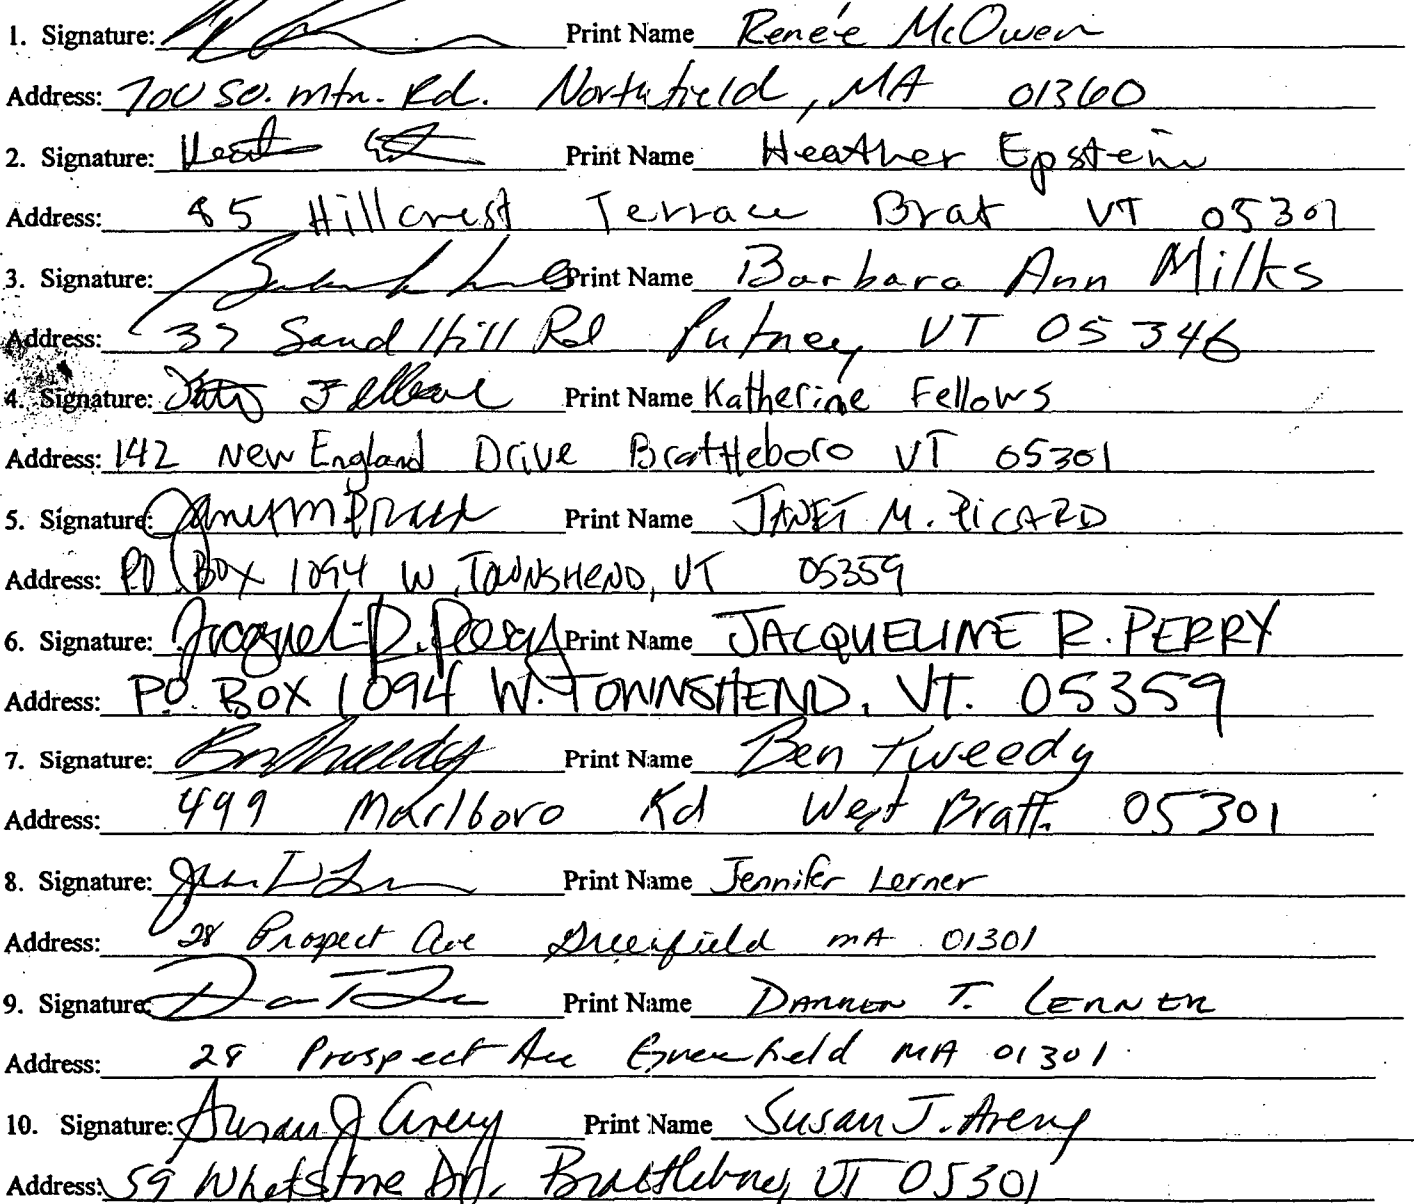 1. Signature: Print Name Renée McOwen
Address: 700 So. Mtn. Rd. Northfield, MA 01360
2. Signature: Print Name Heather Epstein
Address: 85 Hillcrest Terrace Brat VT 05301
3. Signature: Print Name Barbara Ann Milks
Address: 37 Sand Hill Rd Putney VT 05346
4. Signature: Print Name Katherine Fellows
Address: 142 New England Drive Brattleboro VT 05301
5. Signature: Janet M Picard Print Name JANET M. PICARD
Address: PO BOX 1094 W. TOWNSHEND, VT 05359
6. Signature: Print Name JACQUELINE R. PERRY
Address: P.O. BOX 1094 W. TOWNSHEND, VT. 05359
7. Signature: Ben Tweedy Print Name Ben Tweedy
Address: 499 Marlboro Rd West Bratt. 05301
8. Signature: Print Name Jennifer Lerner
Address: 28 Prospect Ave Greenfield MA 01301
9. Signature: Print Name DARREN T. LERNER
Address: 28 Prospect Ave Greenfield MA 01301
10. Signature: Susan J Avery Print Name Susan J. Avery
Address: 59 Whetstone Dr, Brattleboro, VT 05301